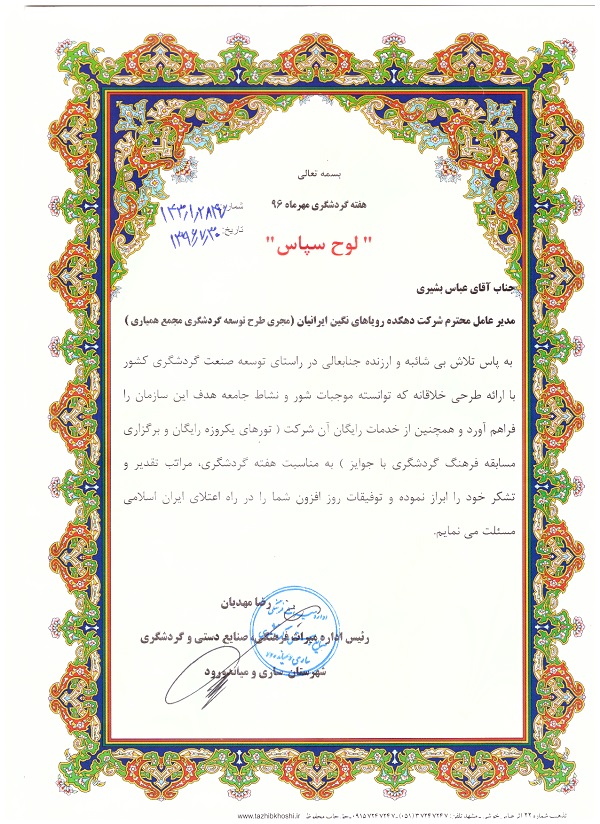 بسمه تعالی
هفته گردشگری مهرماه ۹۶
شماره: ۱۴۳/۱۰۲۸۴۷
تاریخ: ۱۳۹۶/۷/۳۰
" لوح سپاس "
جناب آقای عباس بشیری
مدیر عامل محترم شرکت دهکده رویاهای نگین ایرانیان (مجری طرح توسعه گردشگری مجمع همیاری )
به پاس تلاش بی شائبه و ارزنده جنابعالی در راستای توسعه صنعت گردشگری کشور
با ارائه طرحی خلاقانه که توانسته موجبات شور و نشاط جامعه هدف این سازمان را
فراهم آورد و همچنین از خدمات رایگان آن شرکت ( تورهای یکروزه رایگان و برگزاری
مسابقه فرهنگ گردشگری با جوایز ) به مناسبت هفته گردشگری، مراتب تقدیر و
تشکر خود را ابراز نموده و توفیقات روز افزون شما را در راه اعتلای ایران اسلامی
مسئلت می نمایم.
رضا مهدیان
رئیس اداره میراث فرهنگی، صنایع دستی و گردشگری
شهرستان ساری و میاندورود
تذهیب شماره ۲۲ اثر عباس خوشی ـ مشهد تلفن: ۳۷۲۴۷۲۴۷(۰۵۱)ـ۰۹۱۵۷۲۴۷۲۴۷ـ حق چاپ محفوظ www.tazhibkhoshi.ir